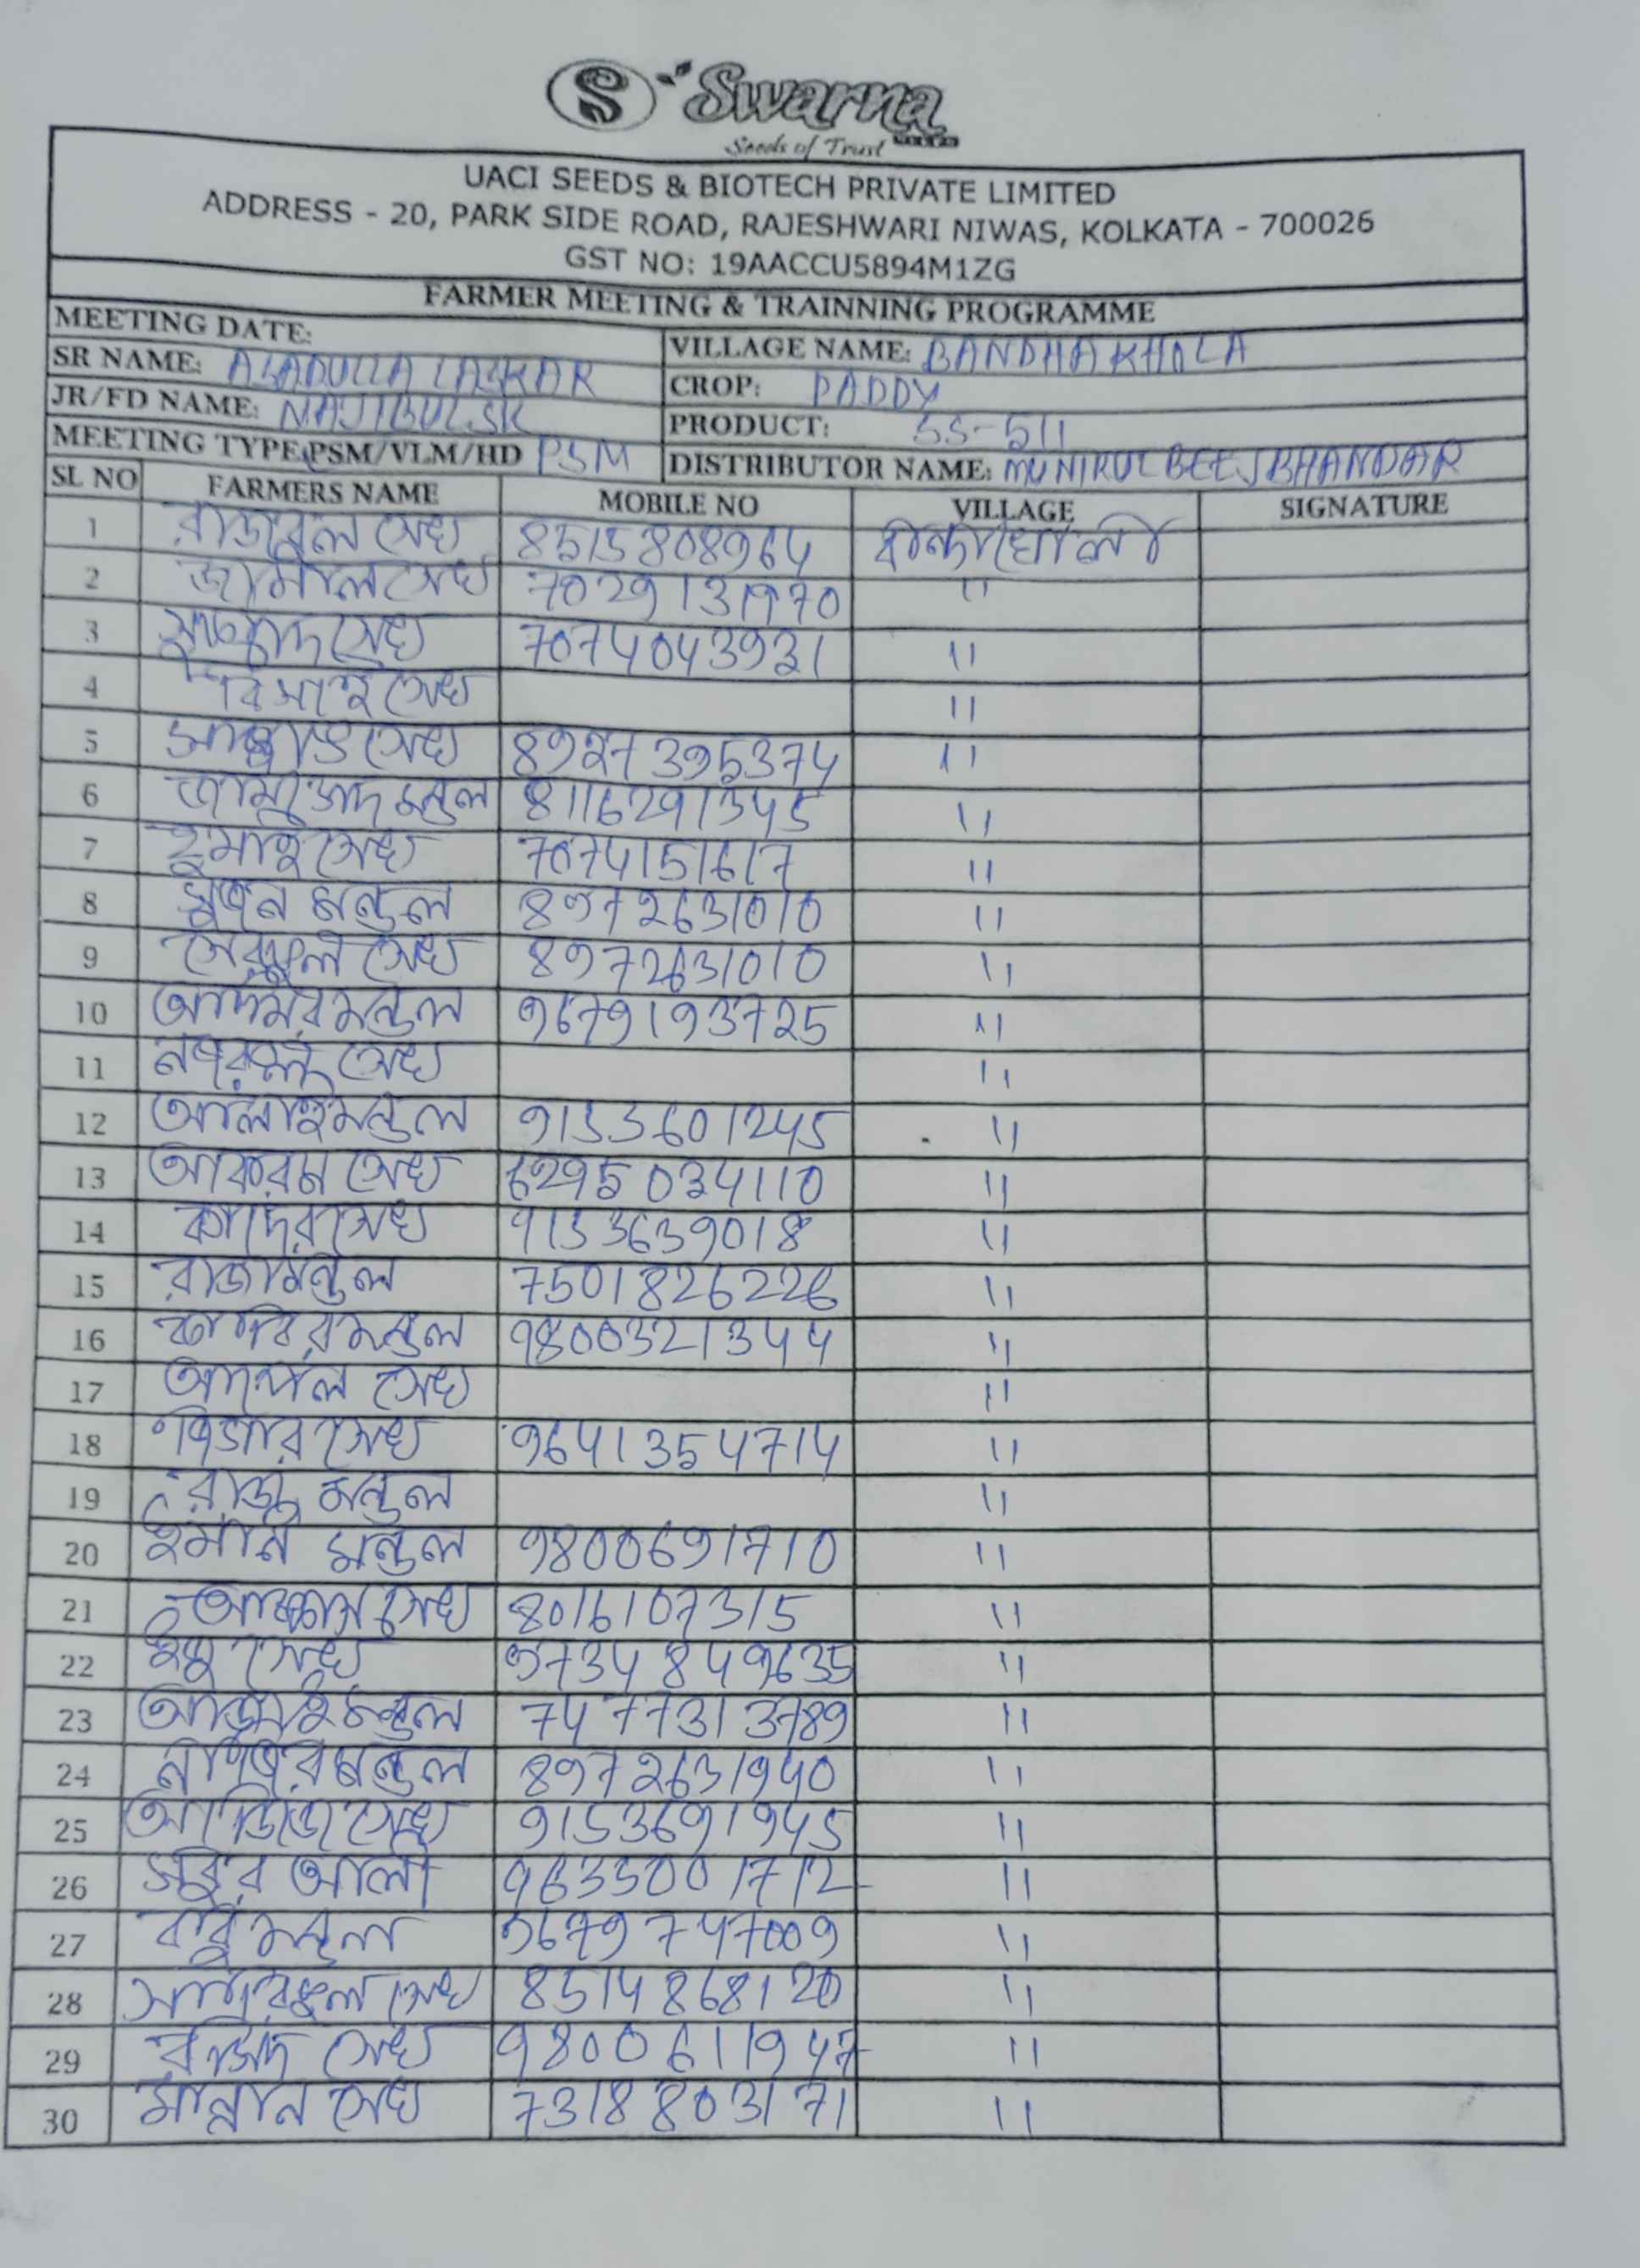 S Swarna
Seeds of Trust
UACI SEEDS & BIOTECH PRIVATE LIMITED
ADDRESS - 20, PARK SIDE ROAD, RAJESHWARI NIWAS, KOLKATA - 700026
GST NO: 19AACCU5894M1ZG
FARMER MEETING & TRAINNING PROGRAMME
MEETING DATE: VILLAGE NAME: BANDHAKHOLA
SR NAME: ASADULLA LASKAR CROP: PADDY
JR/FD NAME: NAJIBUL SK PRODUCT: SS-511
MEETING TYPE PSM/VLM/HD PSM DISTRIBUTOR NAME: MUNIRUL BEEJ BHANDAR
SL NO FARMERS NAME MOBILE NO VILLAGE SIGNATURE
1 সেখ 8515808964
2 জামাল সেখ 7029131970 "
3 সেখ 7074043931 "
4 সেখ "
5 সেখ 8927395374 "
6 মন্ডল 8116291345 "
7 সেখ 7074151617 "
8 মন্ডল 8972631010 "
9 সেখ 8972631010 "
10 মন্ডল 9679193725 "
11 সেখ "
12 মন্ডল 9153601245 "
13 আকরম সেখ 6295034110 "
14 কাদের সেখ 9153639018 "
15 রাজা মন্ডল 7501826226 "
16 মন্ডল 9800321344 "
17 সেখ "
18 সেখ 9641354714 "
19 রাজু মন্ডল "
20 ইমান মন্ডল 9800691710 "
21 সেখ 8016107315 "
22 সেখ 9734849635 "
23 মন্ডল 7477313789 "
24 মন্ডল 8972631940 "
25 আজিজ সেখ 9153691945 "
26 আলী 9635001712 "
27 বাবু মন্ডল 9679747009 "
28 সেখ 8514868120 "
29 সেখ 9800611947 "
30 মান্নান সেখ 7318803171 "